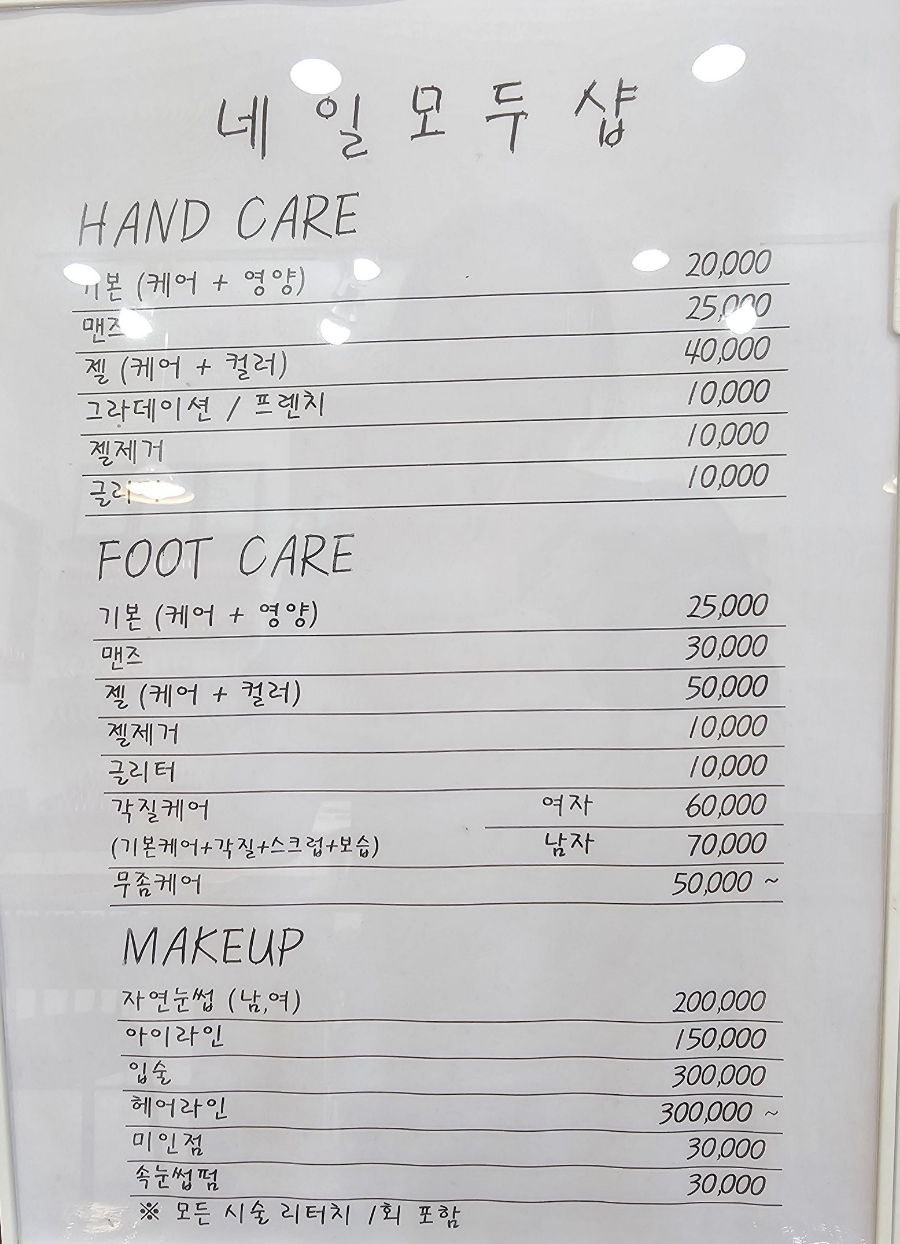 네일모두샵
HAND CARE
기본 (케어 + 영양) 20,000
맨즈 25,000
젤 (케어 + 컬러) 40,000
그라데이션 / 프렌치 10,000
젤제거 10,000
10,000
FOOT CARE
기본 (케어 + 영양) 25,000
맨즈 30,000
젤 (케어 + 컬러) 50,000
젤제거 10,000
글리터 10,000
각질케어 여자 60,000
(기본케어+각질+스크럽+보습) 남자 70,000
무좀케어 50,000 ~
MAKEUP
자연눈썹 (남,여) 200,000
아이라인 150,000
입술 300,000
헤어라인 300,000 ~
미인점 30,000
속눈썹펌 30,000
※ 모든 시술 리터치 1회 포함